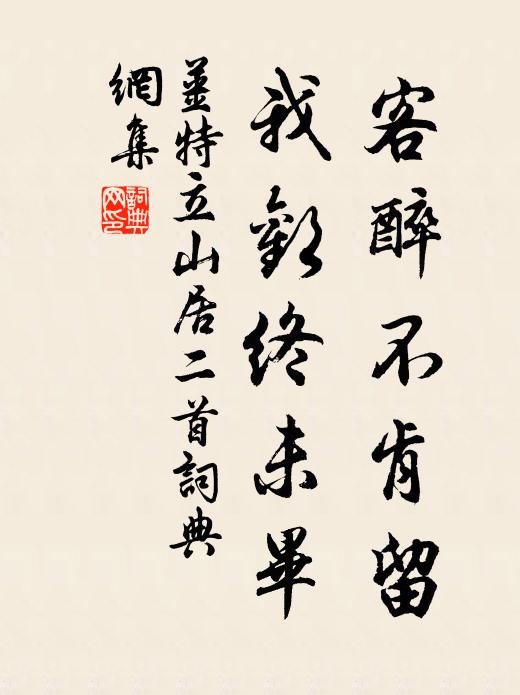 客醉不肯留
我歡終未畢
姜特立山居二首詞典
網集
詞典網印